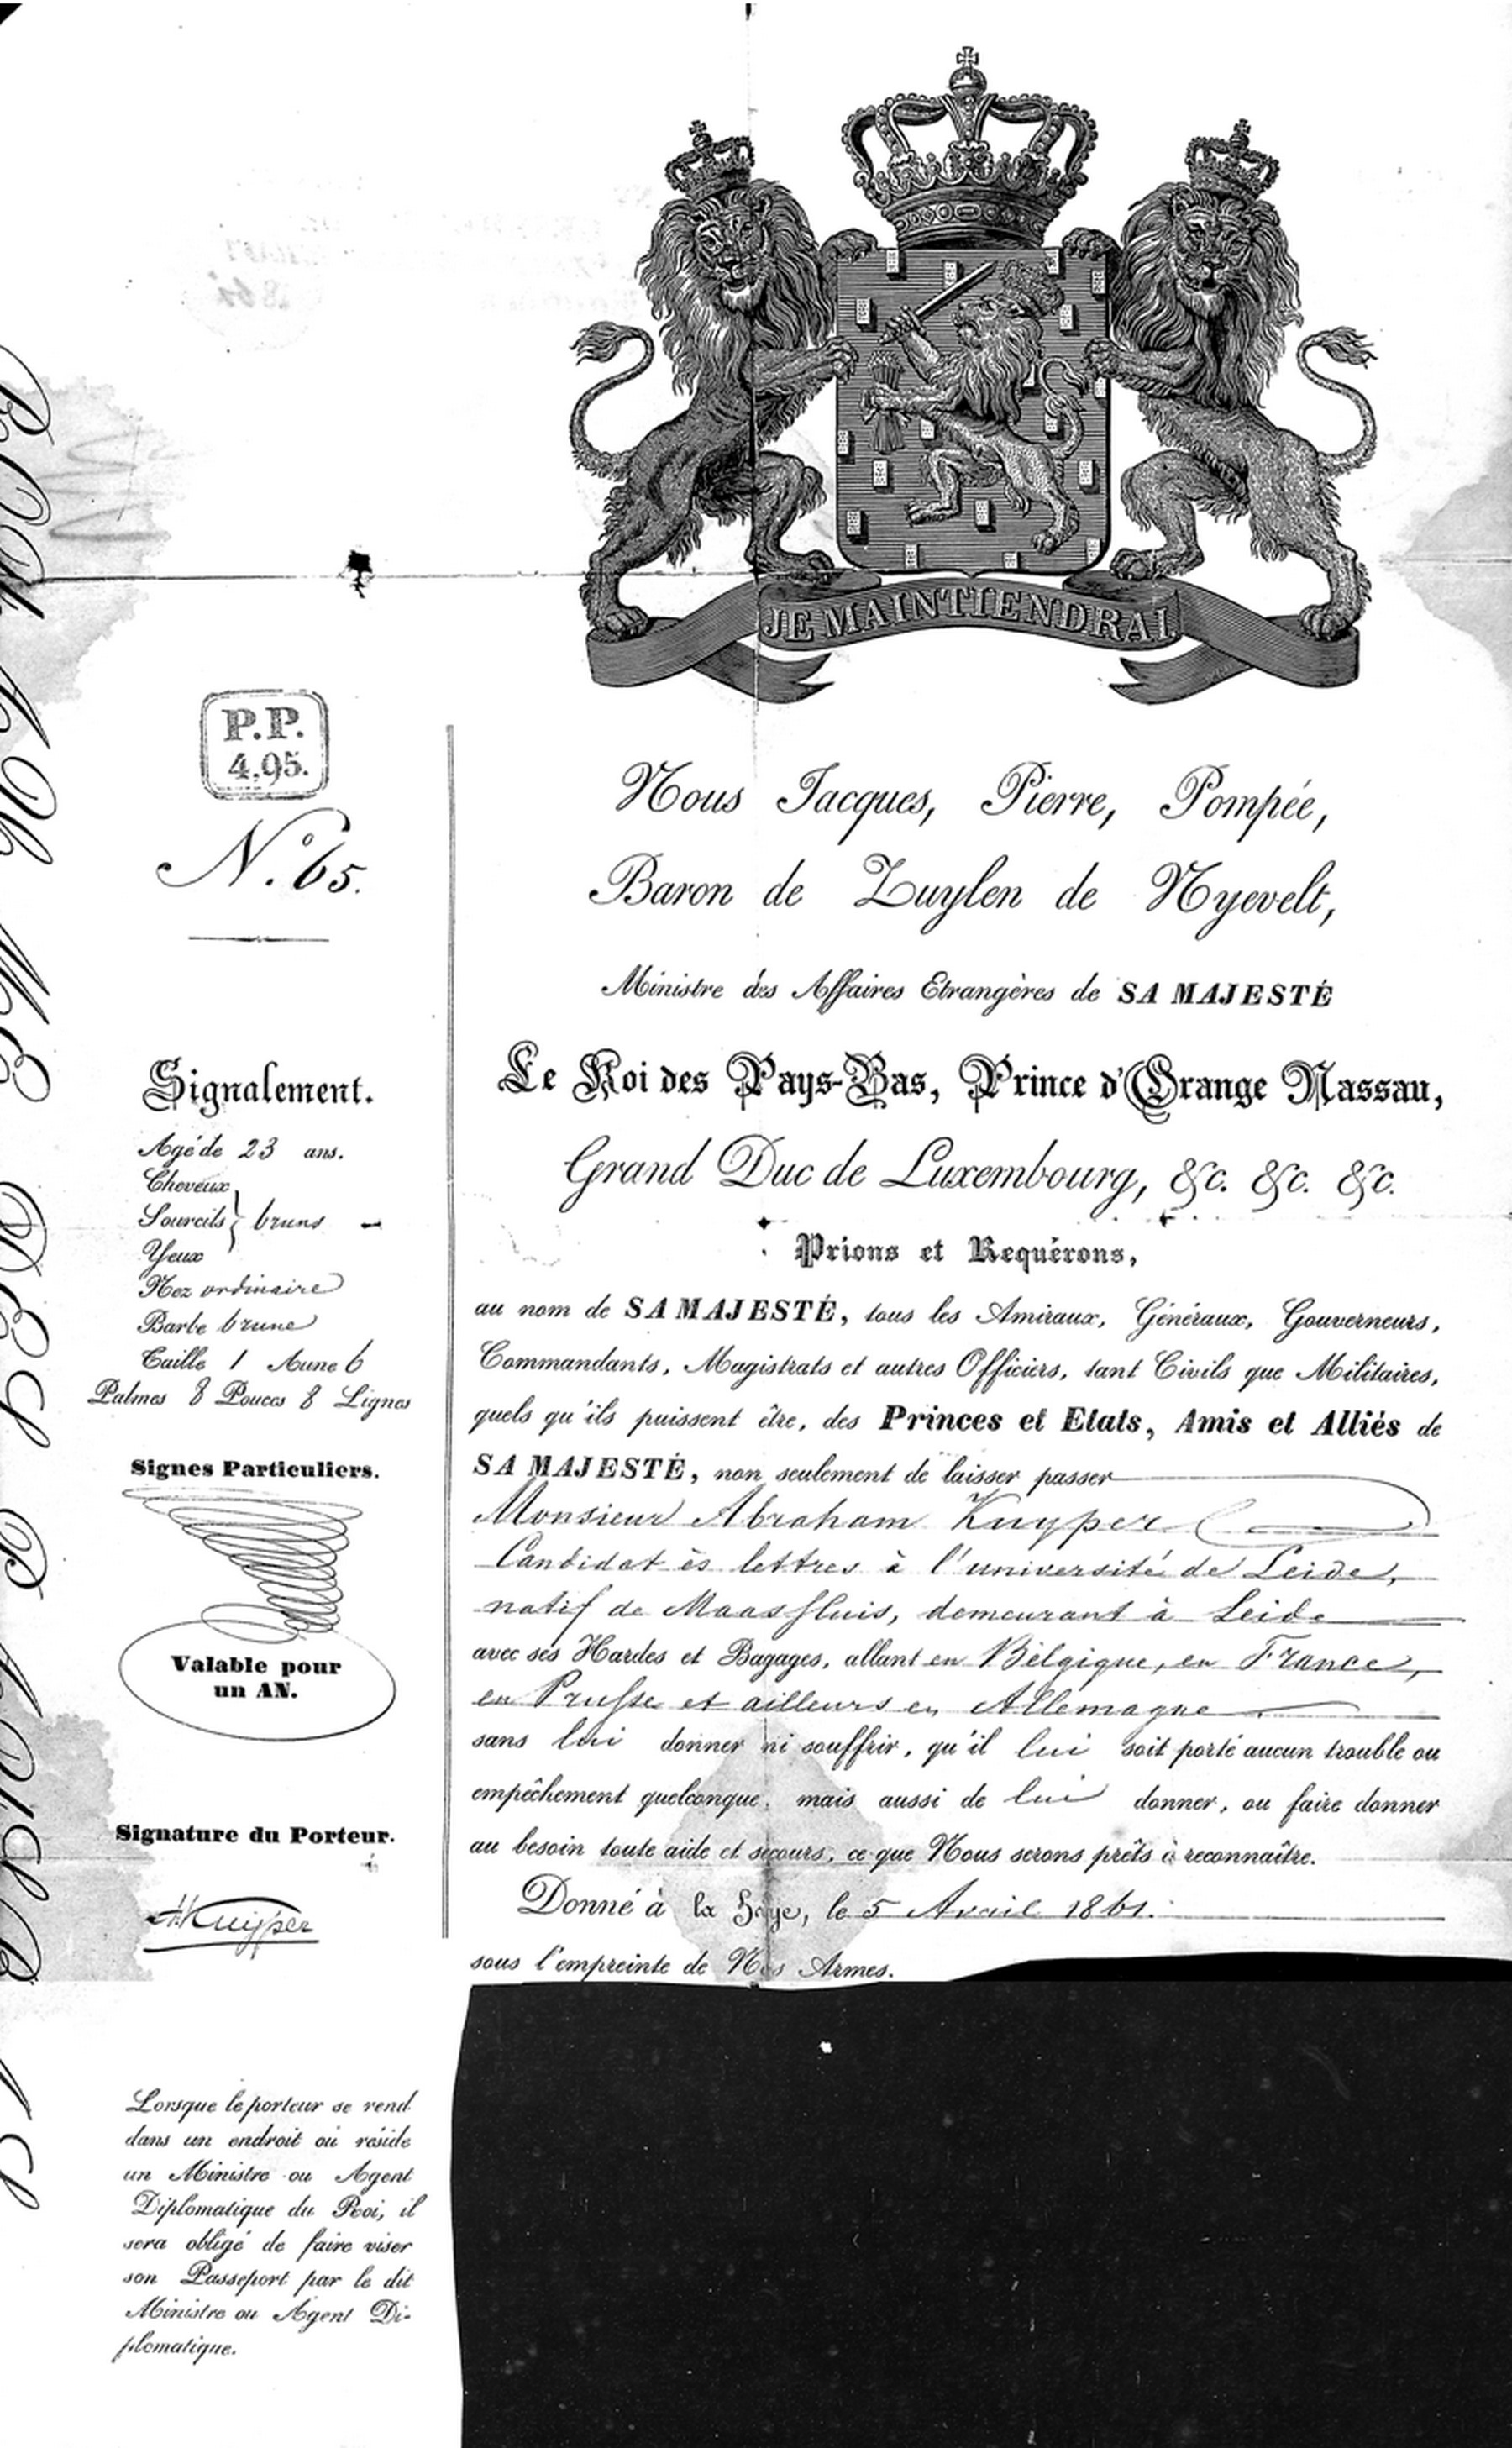 JE MAINTIENDRAI.
P.P.
4,95.
N.º 65.
Signalement.
Agé de 23 ans.
Cheveux
Sourcils } bruns
Yeux
Nez ordinaire
Barbe brune
Taille 1 Aune 6
Palmes 8 Pouces 8 Lignes
Signes Particuliers.
Valable pour
un AN.
Signature du Porteur.
A. Kuijper
Lorsque le porteur se rend
dans un endroit où réside
un Ministre ou Agent
Diplomatique du Roi, il
sera obligé de faire viser
son Passeport par le dit
Ministre ou Agent Di-
plomatique.
Nous Jacques, Pierre, Pompée,
Baron de Zuylen de Nyevelt,
Ministre des Affaires Etrangères de SA MAJESTÉ
Le Roi des Pays-Bas, Prince d'Orange Nassau,
Grand Duc de Luxembourg, &c. &c. &c.
Prions et Requérons,
au nom de SA MAJESTÉ, tous les Amiraux, Généraux, Gouverneurs,
Commandants, Magistrats et autres Officiers, tant Civils que Militaires,
quels qu'ils puissent être, des Princes et Etats, Amis et Alliés de
SA MAJESTÉ, non seulement de laisser passer
Monsieur Abraham Kuyper
Candidat ès lettres à l'université de Leide,
natif de Maassluis, demeurant à Leide
avec ses Hardes et Bagages, allant en Belgique, en France,
en Prusse et ailleurs en Allemagne
sans lui donner ni souffrir, qu'il lui soit porté aucun trouble ou
empêchement quelconque, mais aussi de lui donner, ou faire donner
au besoin toute aide et secours, ce que Nous serons prêts à reconnaître.
Donné à la Haye, le 5 Avril 1861.
sous l'empreinte de Nos Armes.